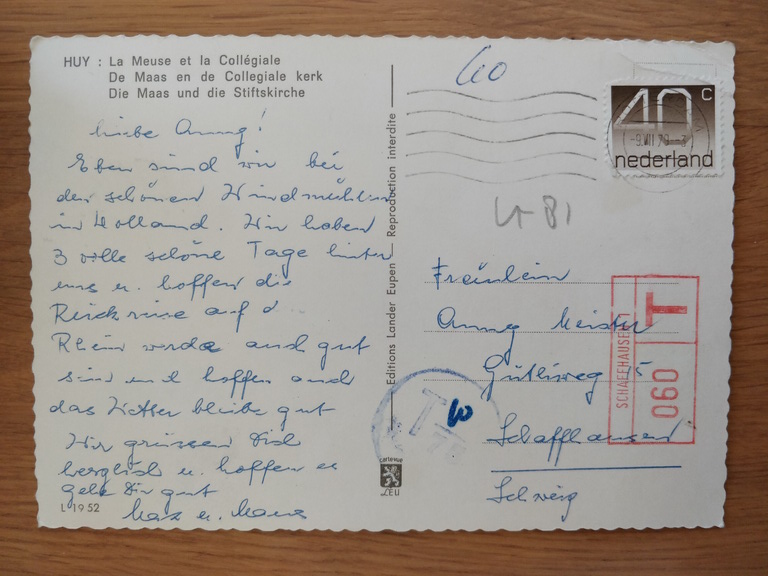 HUY : La Meuse et la Collégiale
De Maas en de Collegiale kerk
Die Maas und die Stiftskirche
liebe Anny!
Eben sind wir bei
den schönen Windmühlen
in Holland. Wir haben
3 volle schöne Tage hinter
uns u. hoffen die
Rückreise auf d
Rhein werde auch gut
sein und hoffen auch
das Wetter bleibe gut
Wir grüssen Dich
herzlich u. hoffen es
gehe Dir gut
Max u.
L 19 52
Editions Lander Eupen — Reproduction interdite
cartevue
LEU
60
40 c
nederland
-9.VII 79
81
Fräulein
Anny Meister
Gütliweg 15
Schaffhausen
Schweiz
T
T
060
SCHAFFHAUSEN